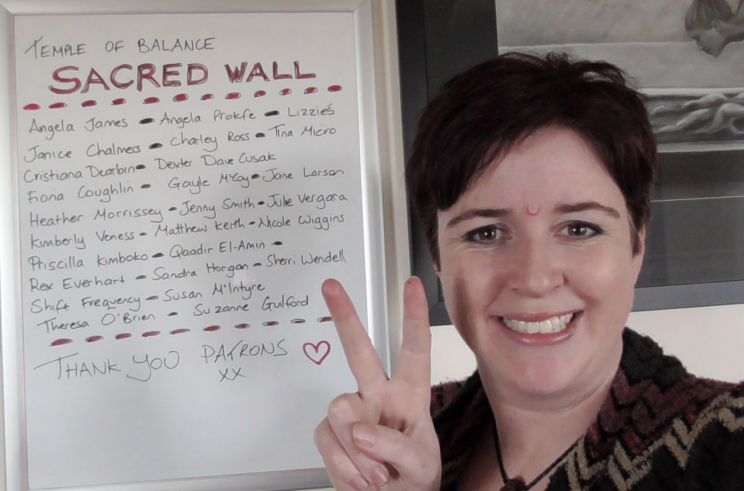 TEMPLE OF BALANCE
SACRED WALL
Angela James - Angela Prokfe - Lizzies
Janice Chalmers - Charley Ross - Tina Micro
Cristiana Dearbin - Dexter Dave Cusak
Fiona Coughlin - Gayle McCoy - Jane Larson
Heather Morrissey - Jenny Smith - Julie Vergara
Kimberly Veness - Matthew Keith - Nicole Wiggins
Priscilla Kimboko - Qaadir El-Amin -
Rex Everhart - Sandra Horgan - Sherri Wendell
Shift Frequency - Susan McIntyre
Theresa O'Brien - Suzanne Gulford
THANK YOU PATRONS
xx